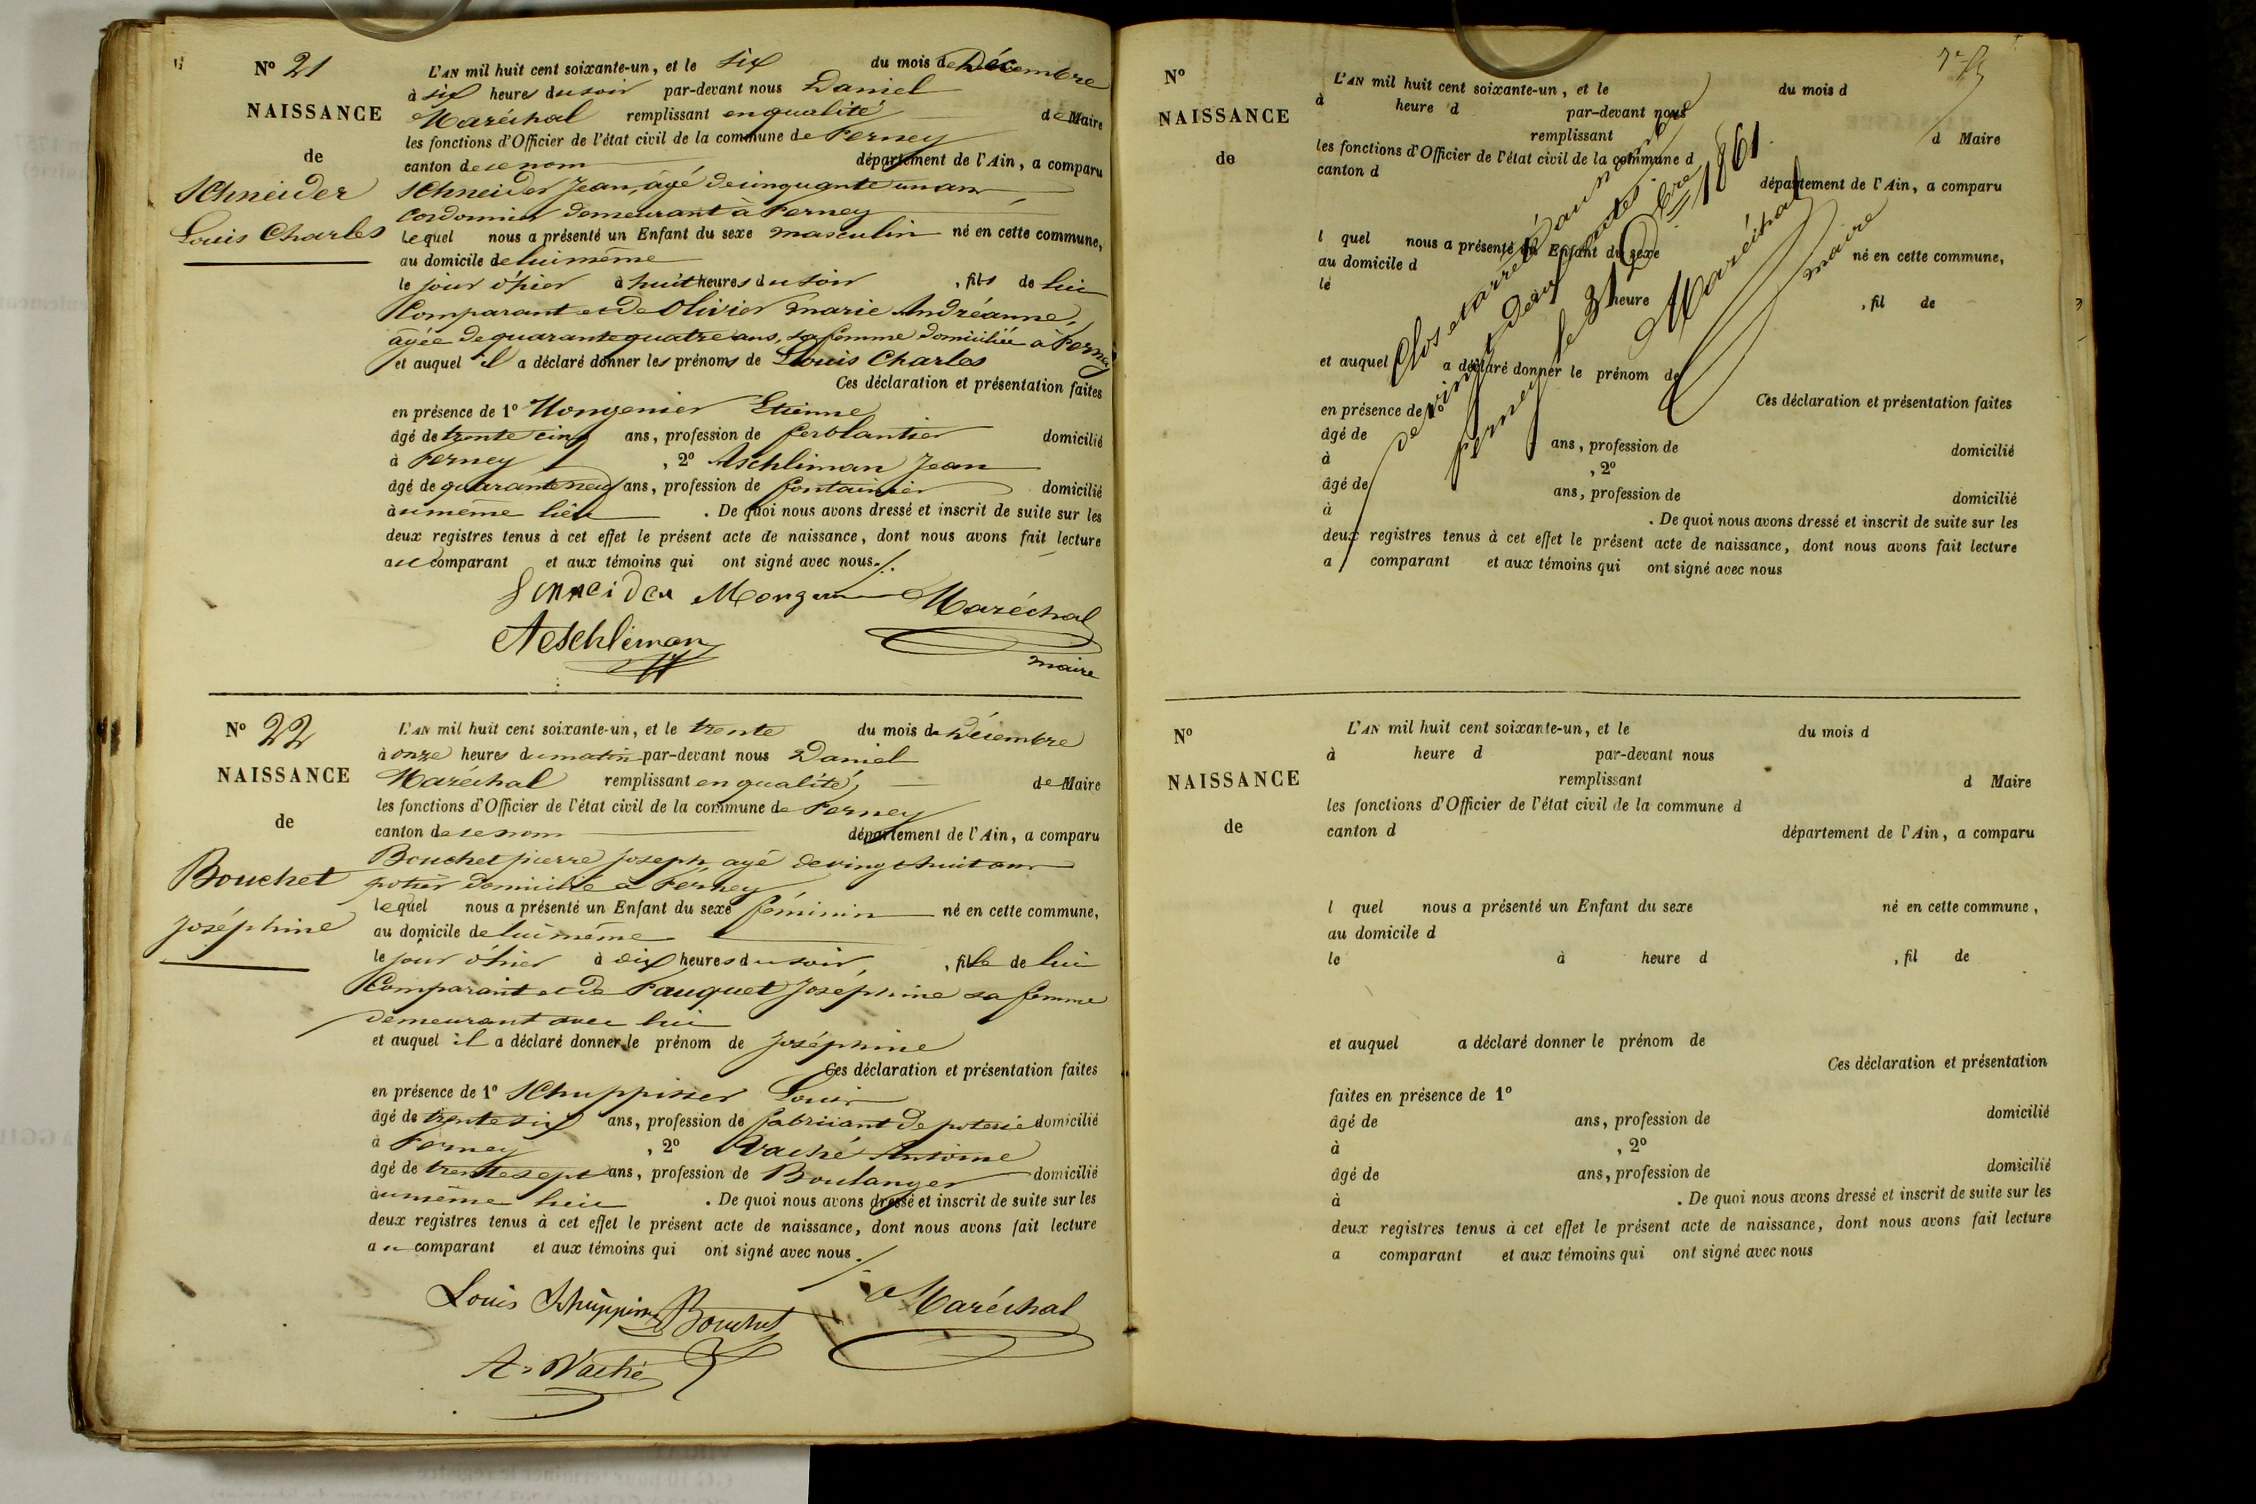 N° 21
NAISSANCE
de
Schneider
Louis Charles
L'AN mil huit cent soixante-un, et le six du mois de Décembre
à six heures du soir par-devant nous Daniel
Maréchal remplissant en qualité de Maire
les fonctions d'Officier de l'état civil de la commune de Ferney
canton de ce nom département de l'Ain, a comparu
Schneider Jean, âgé de cinquante un ans
Cordonnier demeurant à Ferney
lequel nous a présenté un Enfant du sexe masculin né en cette commune,
au domicile de lui même
le jour d'hier à huit heures du soir, fils de lui
Comparant et de Olivier Marie Andréanne,
âgée de quarante quatre ans, sa femme domiciliée à Ferney
et auquel il a déclaré donner les prénoms de Louis Charles
Ces déclaration et présentation faites
en présence de 1° Mongenier Etienne
âgé de trente cinq ans, profession de ferblantier domicilié
à Ferney, 2° Aschliman Jean
âgé de quarante neuf ans, profession de fontainier domicilié
au même lieu. De quoi nous avons dressé et inscrit de suite sur les
deux registres tenus à cet effet le présent acte de naissance, dont nous avons fait lecture
au comparant et aux témoins qui ont signé avec nous./.
Schneider Maréchal
Aeschliman
maire
N° 22
NAISSANCE
de
Bouchet
Joséphine
L'AN mil huit cent soixante-un, et le trente du mois de Décembre
à onze heures du matin par-devant nous Daniel
Maréchal remplissant en qualité, de Maire
les fonctions d'Officier de l'état civil de la commune de Ferney
canton de ce nom département de l'Ain, a comparu
Bouchet pierre Joseph agé de vingt huit ans
potier domicilié à Ferney
lequel nous a présenté un Enfant du sexe féminin né en cette commune,
au domicile de lui même
le jour d'hier à dix heures du soir, fille de lui
Comparant et de Fauquet Joséphine sa femme
demeurant avec lui
et auquel il a déclaré donner le prénom de Joséphine
Ces déclaration et présentation faites
en présence de 1° Schuppisser Louis
âgé de trente six ans, profession de fabricant de poterie domicilié
à Ferney, 2° Vaché Antoine
âgé de trente sept ans, profession de Boulanger domicilié
au même lieu. De quoi nous avons dressé et inscrit de suite sur les
deux registres tenus à cet effet le présent acte de naissance, dont nous avons fait lecture
au comparant et aux témoins qui ont signé avec nous./.
Louis Bouchet Maréchal
A. Vaché
N°
NAISSANCE
de
L'AN mil huit cent soixante-un, et le du mois d
à heure d par-devant nous
remplissant d Maire
les fonctions d'Officier de l'état civil de la commune d
canton d département de l'Ain, a comparu
l quel nous a présenté un Enfant du sexe né en cette commune,
au domicile d
le heure, fil de
et auquel a déclaré donner le prénom de
Ces déclaration et présentation faites
en présence de 1°
âgé de ans, profession de domicilié
à , 2°
âgé de ans, profession de domicilié
à . De quoi nous avons dressé et inscrit de suite sur les
deux registres tenus à cet effet le présent acte de naissance, dont nous avons fait lecture
a comparant et aux témoins qui ont signé avec nous
Clos et arrêté au nombre
de vingt deux actes.
ferney le 31 Xbre 1861.
Maréchal
maire
N°
NAISSANCE
de
L'AN mil huit cent soixante-un, et le du mois d
à heure d par-devant nous
remplissant d Maire
les fonctions d'Officier de l'état civil de la commune d
canton d département de l'Ain, a comparu
l quel nous a présenté un Enfant du sexe né en cette commune,
au domicile d
le à heure d , fil de
et auquel a déclaré donner le prénom de
Ces déclaration et présentation
faites en présence de 1°
âgé de ans, profession de domicilié
à , 2°
âgé de ans, profession de domicilié
à . De quoi nous avons dressé et inscrit de suite sur les
deux registres tenus à cet effet le présent acte de naissance, dont nous avons fait lecture
a comparant et aux témoins qui ont signé avec nous